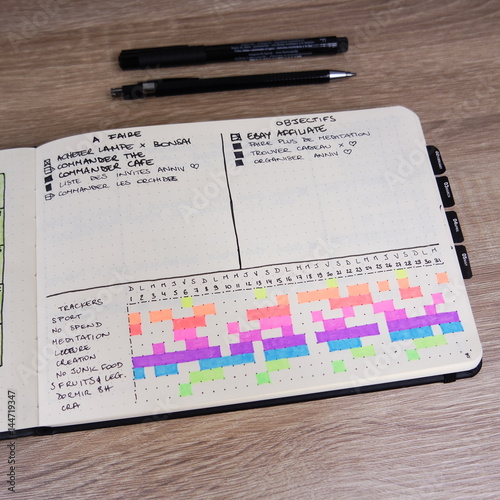 A FAIRE
ACHETER LAMPE X BONSAI
COMMANDER THE
COMMANDER CAFE
LISTE DES INVITES ANNIV ♡
COMMANDER LES ORCHIDEES
OBJECTIFS
EBAY AFFILIATE
FAIRE PLUS DE MEDITATION
TROUVER CADEAU X ♡
ORGANISER ANNIV ♡
D L M M J V S D L M M J V S D L M M J V S D L M M J V S D L M
1 2 3 4 5 6 7 8 9 10 11 12 13 14 15 16 17 18 19 20 21 22 23 24 25 26 27 28 29 30 31
TRACKERS
SPORT
NO SPEND
MEDITATION
LECTURE
CREATION
NO JUNIC FOOD
5 FRUITS & LEG.
DORMIR 8H
CRA
Adobe Stock | #144719347